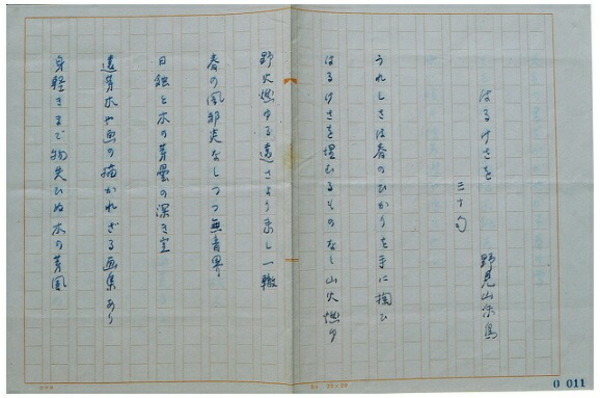 はるけさを　野見山朱鳥
三十句
うれしさは春のひかりを手に掬ひ
はるけさを埋むるものなし山火燃ゆ
野火燃ゆる遠さより来し一轍
春の風邪炎なしつつ無音界
日蝕と木の芽曇の深き空
遠芽木や画の描かれざる画集あり
身軽きまで物失ひぬ木の芽風
0 011